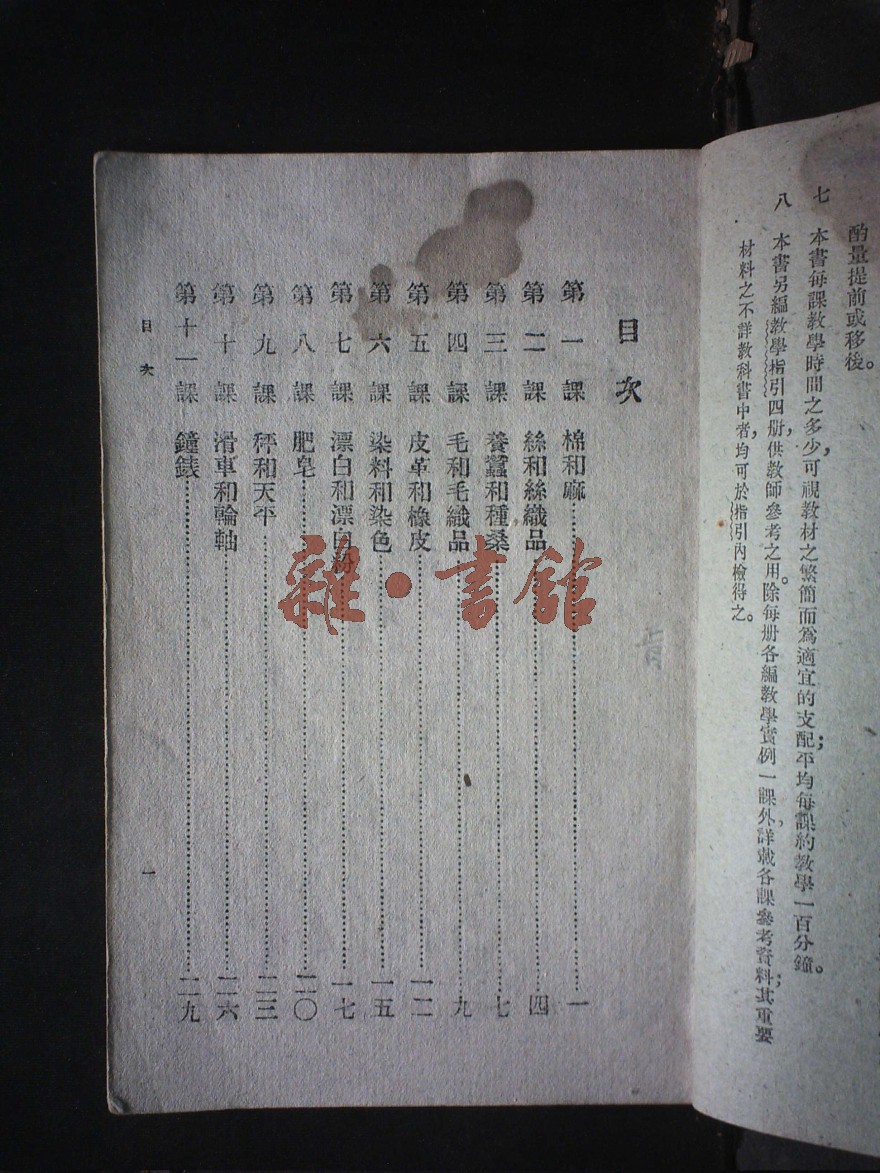 酌量提前或移後。
七 本書每課教學時間之多少,可視教材之繁簡而爲適宜的支配;平均每課約教學一百分鐘。
八 本書另編教學指引四册,供教師參考之用。除每册各編教學實例一課外,詳載各課參考資料;其重要
材料之不詳教科書中者,均可於指引內檢得之。
目次
第一課 棉和麻 一
第二課 絲和絲織品 四
第三課 養蠶和種桑 七
第四課 毛和毛織品 九
第五課 皮革和橡皮 一二
第六課 染料和染色 一五
第七課 漂白和漂白粉 一七
第八課 肥皂 二〇
第九課 秤和天平 二三
第十課 滑車和輪軸 二六
第十一課 鐘錶 二九
目次 一
雜·書館